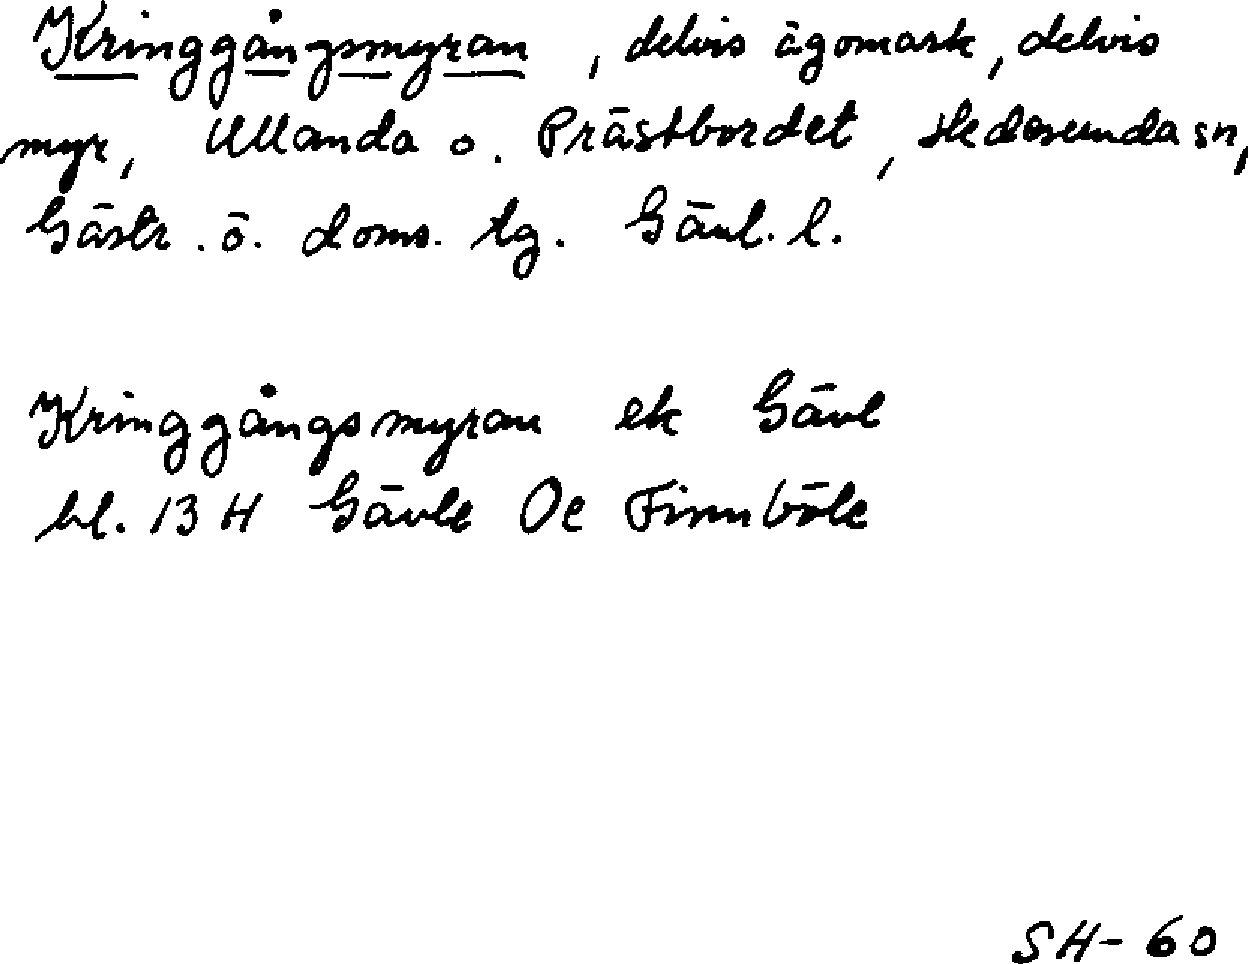 Kringgångsmyran, delvis ägomark, delvis
myr, Ullanda o. Prästbordet, Hedesunda sn,
Gästr. ö. doms. tg. Gävl. l.
Kringgångsmyran ek Gävl
bl. 13 H Gävle Oe Finnböle
SH-60